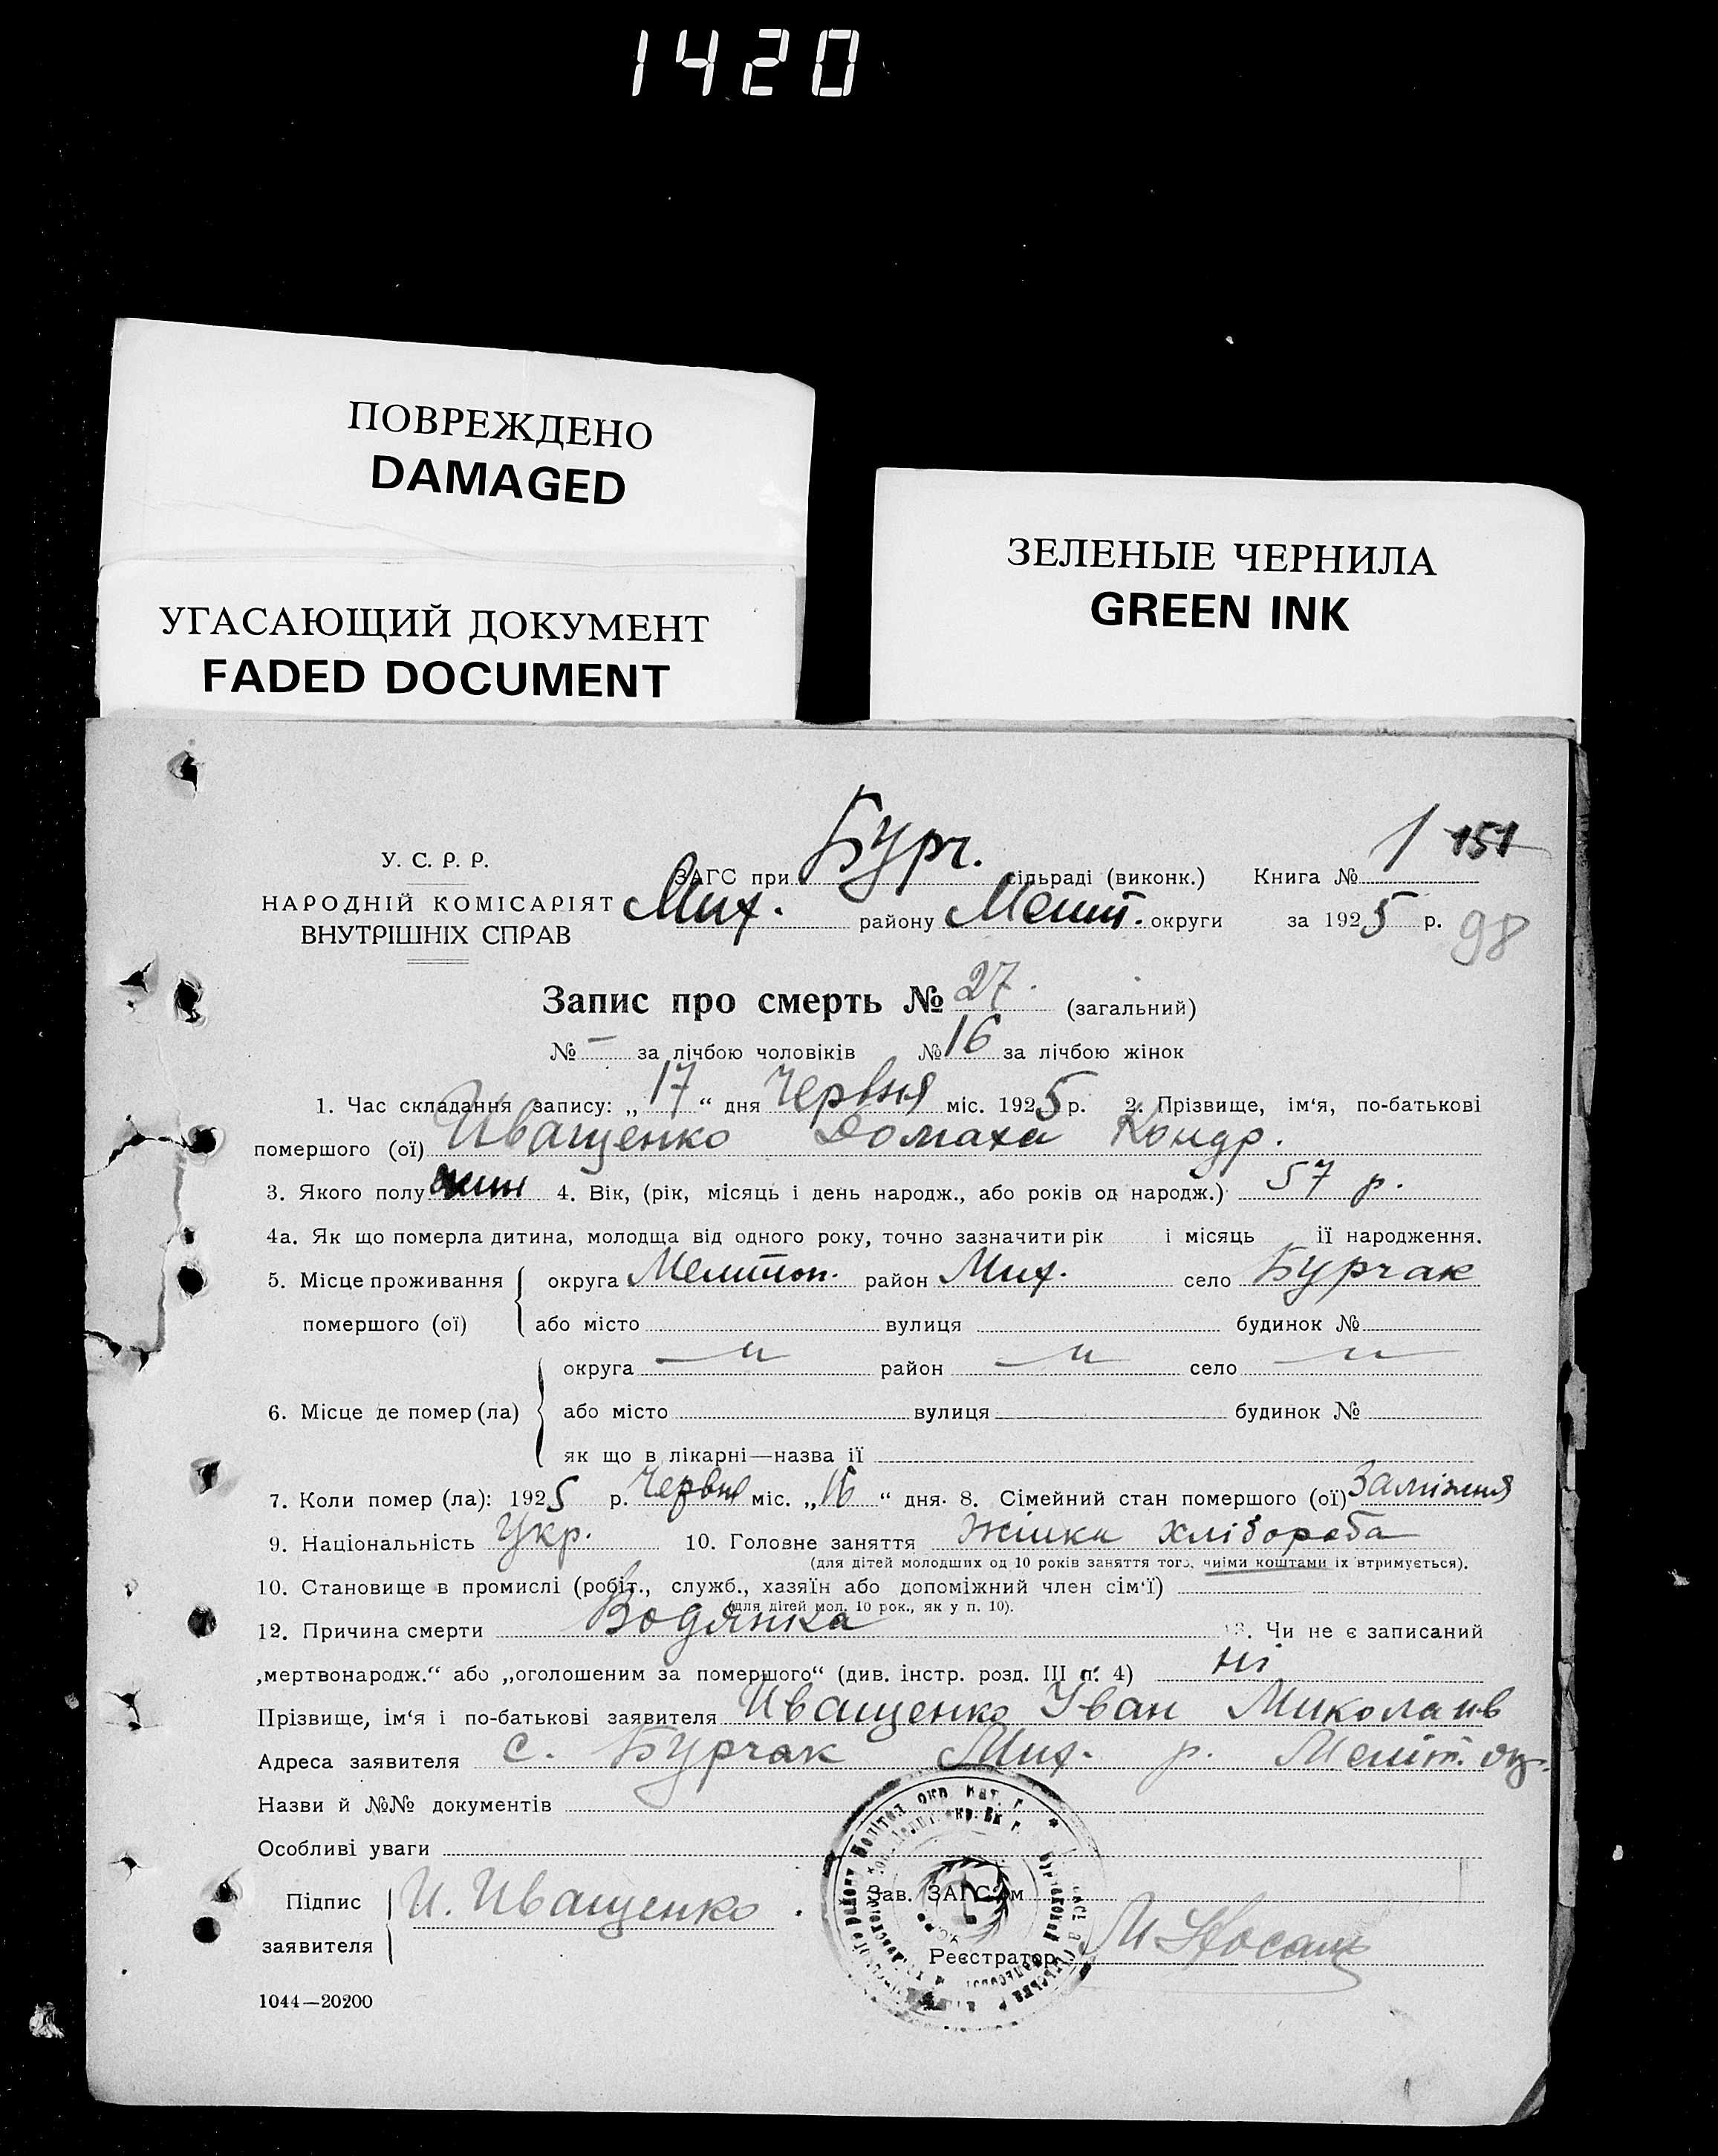 1420
ПОВРЕЖДЕНО
DAMAGED
УГАСАЮЩИЙ ДОКУМЕНТ
FADED DOCUMENT
ЗЕЛЕНЫЕ ЧЕРНИЛА
GREEN INK
У. С. Р. Р.
НАРОДНІЙ КОМІСАРІЯТ
ВНУТРІШНІХ СПРАВ
ЗАГС при Бурч. сільраді (виконк.) Книга № 1 151
Мих. району Меліт. округи за 1925 р. 98
Запис про смерть № 27. (загальний)
№ – за лічбою чоловіків № 16 за лічбою жінок
1. Час складання запису: „17“ дня Червня міс. 1925 р. 2. Прізвище, ім‘я, по-батькові
помершого (ої) Иващенко Домаха Кондр.
3. Якого полу жин 4. Вік, (рік, місяць і день народж., або років од народж.) 57 р.
4а. Як що померла дитина, молодща від одного року, точно зазначити рік і місяць її народження.
5. Місце проживання округа Мелитоп. район Мих. село Бурчак
помершого (ої) або місто вулиця будинок №
округа — „ — район — „ — село — „ —
6. Місце де помер (ла) або місто вулиця будинок №
як що в лікарні—назва її
7. Коли помер (ла): 1925 р. Червня міс. „16“ дня. 8. Сімейний стан помершого (ої) Заміжня
9. Національність Укр. 10. Головне заняття Жінка хлібороба
(для дітей молодших од 10 років заняття того, чиїми коштами їх втримується).
10. Становище в промислі (робіт., служб., хазяїн або допоміжний член сім‘ї)
(для дітей мол. 10 рок., як у п. 10).
12. Причина смерти Водянка 13. Чи не є записаний
„мертвонародж.“ або „оголошеним за помершого“ (див. інстр. розд. III п. 4) ні
Прізвище, ім‘я і по-батькові заявителя Иващенко Іван Миколаив
Адреса заявителя с. Бурчак Мих. р. Меліт. ок.
Назви й №№ документів
Особливі уваги
Підпис
заявителя И. Иващенко
Зав. ЗАГС‘ом
Реєстратор М. Носань
1044—20200